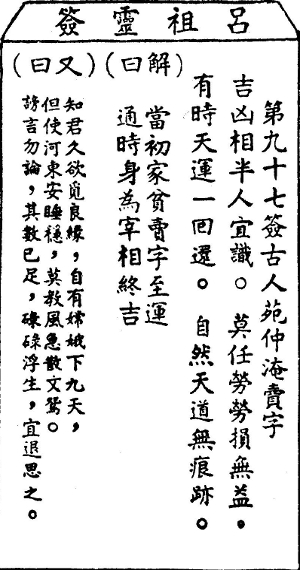 呂祖靈簽
第九十七簽古人苑仲淹賣字
吉凶相半人宜識。莫任勞勞損無益。
有時天運一回還。自然天道無痕跡。
(解曰)
當初家貧賣字至運
通時身為宰相終吉
(又曰)
知君久欲覓良緣,自有嫦娥下九天,
但使河東安睡穩,莫教風急散文鴛。
謗言勿論,其數已足,碌碌浮生,宜退思之。